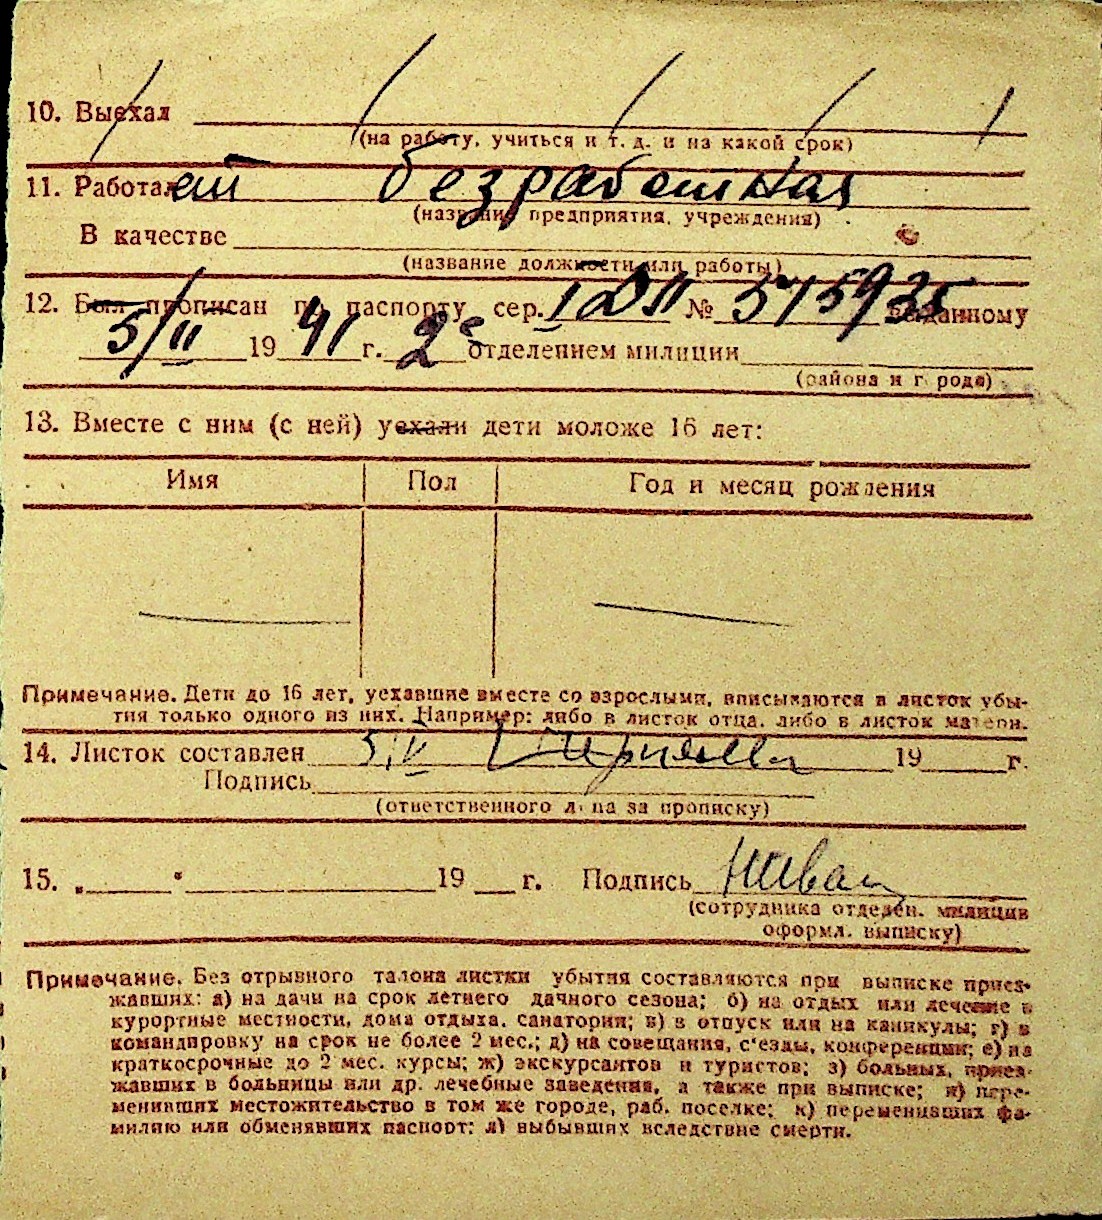 10. Выехал
(на работу, учиться и т. д. и на какой срок)
11. Работает безработная
(название предприятия, учреждения)
В качестве
(название должности или работы)
12. Был прописан по паспорту сер. № 515935 выданному
5/II 1941 г. 2е отделением милиции
(района и города)
13. Вместе с ним (с ней) уехали дети моложе 16 лет:
Имя Пол Год и месяц рождения
Примечание. Дети до 16 лет, уехавшие вместе со взрослыми, вписываются в листок убы-
тия только одного из них. Например: либо в листок отца, либо в листок матери.
14. Листок составлен 5/V 19 г.
Подпись
(ответственного лица за прописку)
15. „ " 19 г. Подпись
(сотрудника отделен. милиции
оформл. выписку)
Примечание. Без отрывного талона листки убытия составляются при выписке приез-
жавших: а) на дачи на срок летнего дачного сезона; б) на отдых или лечение в
курортные местности, дома отдыха, санатории; в) в отпуск или на каникулы; г) в
командировку на срок не более 2 мес.; д) на совещания, с'езды, конференции; е) на
краткосрочные до 2 мес. курсы; ж) экскурсантов и туристов; з) больных, приез-
жавших в больницы или др. лечебные заведения, а также при выписке; и) пере-
менивших местожительство в том же городе, раб. поселке; к) переменивших фа-
милию или обменявших паспорт; л) выбывших вследствие смерти.